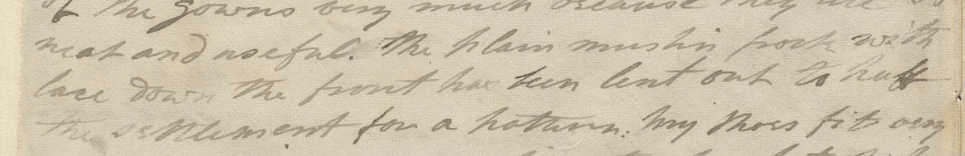 of the gowns very much because they are so
neat and useful. The plain muslin frock with
lace down the front has been lent out to half
the settlement for a pattern. My shoes fit very